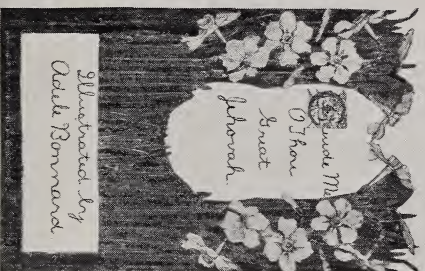 Guide Me
O Thou
Great
Jehovah.
Illustrated by
Adele Bonnard